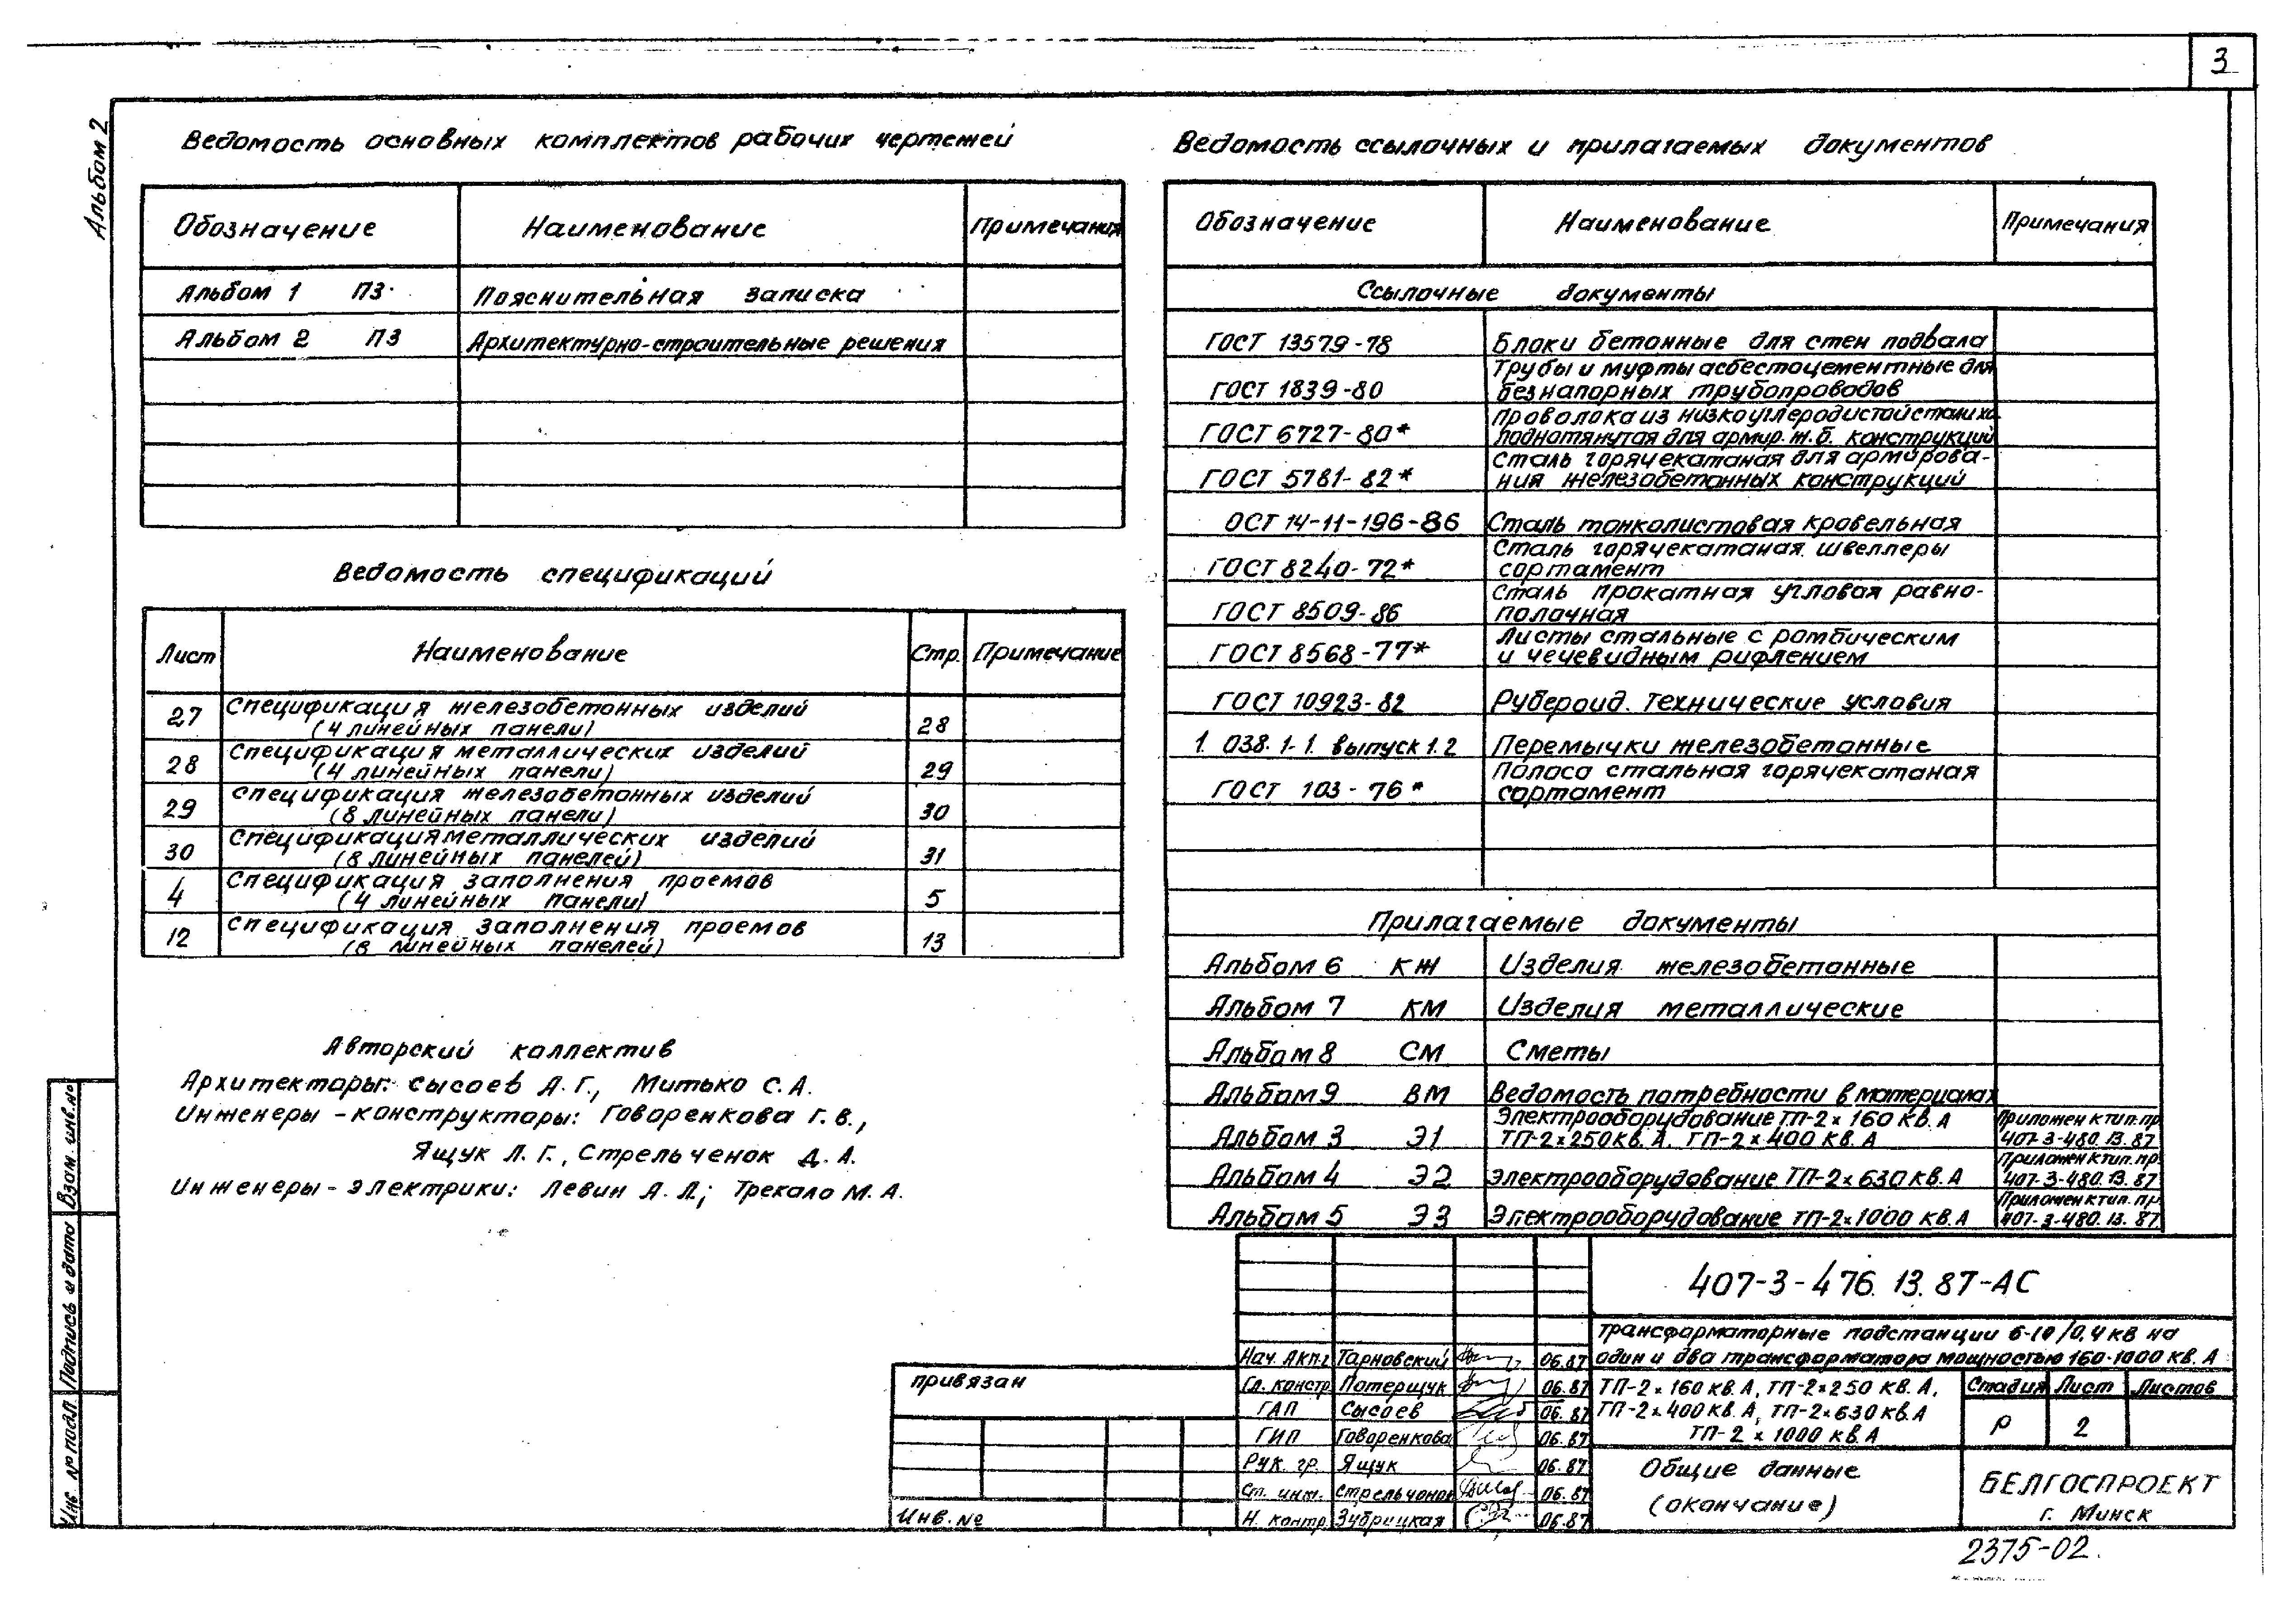 3
Альбом 2
Ведомость основных комплектов рабочих чертежей
Обозначение Наименование Примечания
Альбом 1 ПЗ Пояснительная записка
Альбом 2 ПЗ Архитектурно-строительные решения
Ведомость спецификаций
Лист Наименование Стр. Примечание
27 Спецификация железобетонных изделий (4 линейных панели) 28
28 Спецификация металлических изделий (4 линейных панели) 29
29 Спецификация железобетонных изделий (8 линейных панели) 30
30 Спецификация металлических изделий (8 линейных панелей) 31
4 Спецификация заполнения проемов (4 линейных панели) 5
12 Спецификация заполнения проемов (8 линейных панелей) 13
Авторский коллектив
Архитекторы: Сысоев А.Г., Митько С.А.
Инженеры-конструкторы: Говоренкова Г.В.,
Ящук Л.Г., Стрельченок Д.А.
Инженеры-электрики: Левин А.Л.; Трекало М.А.
Ведомость ссылочных и прилагаемых документов
Обозначение Наименование Примечания
Ссылочные документы
ГОСТ 13579-78 Блоки бетонные для стен подвала
ГОСТ 1839-80 Трубы и муфты асбестоцементные для
безнапорных трубопроводов
ГОСТ 6727-80* Проволока из низкоуглеродистой стали хо-
лоднотянутая для армир. ж.б. конструкций
ГОСТ 5781-82* Сталь горячекатаная для армирова-
ния железобетонных конструкций
ОСТ 14-11-196-86 Сталь тонколистовая кровельная
ГОСТ 8240-72* Сталь горячекатаная. швеллеры
сортамент
ГОСТ 8509-86 Сталь прокатная угловая равно-
полочная
ГОСТ 8568-77* Листы стальные с ромбическим
и чечевидным рифлением
ГОСТ 10923-82 Рубероид. Технические условия
1.038.1-1. выпуск 1.2 Перемычки железобетонные
ГОСТ 103-76* Полоса стальная горячекатаная
сортамент
Прилагаемые документы
Альбом 6 КЖ Изделия железобетонные
Альбом 7 КМ Изделия металлические
Альбом 8 СМ Сметы
Альбом 9 ВМ Ведомость потребности в материалах
Альбом 3 Э1 Электрооборудование ТП-2×160 кв.А
ТП-2×250 кв.А. ТП-2×400 кв.А Приложен к тип.пр. 407-3-480.13.87
Альбом 4 Э2 Электрооборудование ТП-2×630 кв.А Приложен к тип.пр. 407-3-480.13.87
Альбом 5 Э3 Электрооборудование ТП-2×1000 кв.А Приложен к тип.пр. 407-3-480.13.87
407-3-476.13.87-АС
Трансформаторные подстанции 6-10/0,4 кв на
один и два трансформатора мощностью 160-1000 кв.А
Нач. АКП-2 Тарновский 06.87
Гл. констр. Потерщук 06.87
ГАП Сысоев 06.87
ГИП Говоренкова 06.87
Рук. гр. Ящук 06.87
Ст. инж. Стрельченок 06.87
Н. контр. Зубрицкая 06.87
ТП-2×160 кв.А, ТП-2×250 кв.А,
ТП-2×400 кв.А, ТП-2×630 кв.А
ТП-2×1000 кв.А
Стадия Лист Листов
Р 2
Общие данные
(окончание)
БЕЛГОСПРОЕКТ
г. Минск
привязан
Инв. №
Взам. инв. №
Подпись и дата
Инв. № подл.
2375-02.